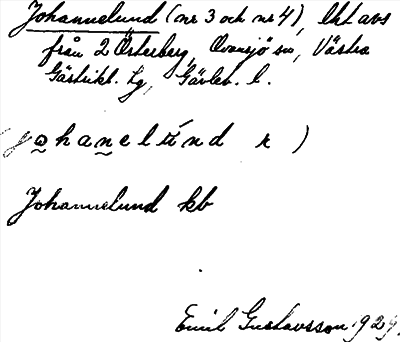 Johannelund (nr 3 och nr 4), lht avs
från 2 Österberg, Ovansjö sn, Västra
Gästrikl. tg, Gävleb. l.
johanelund r )
Johannelund kb
Emil Gustavsson 1929.